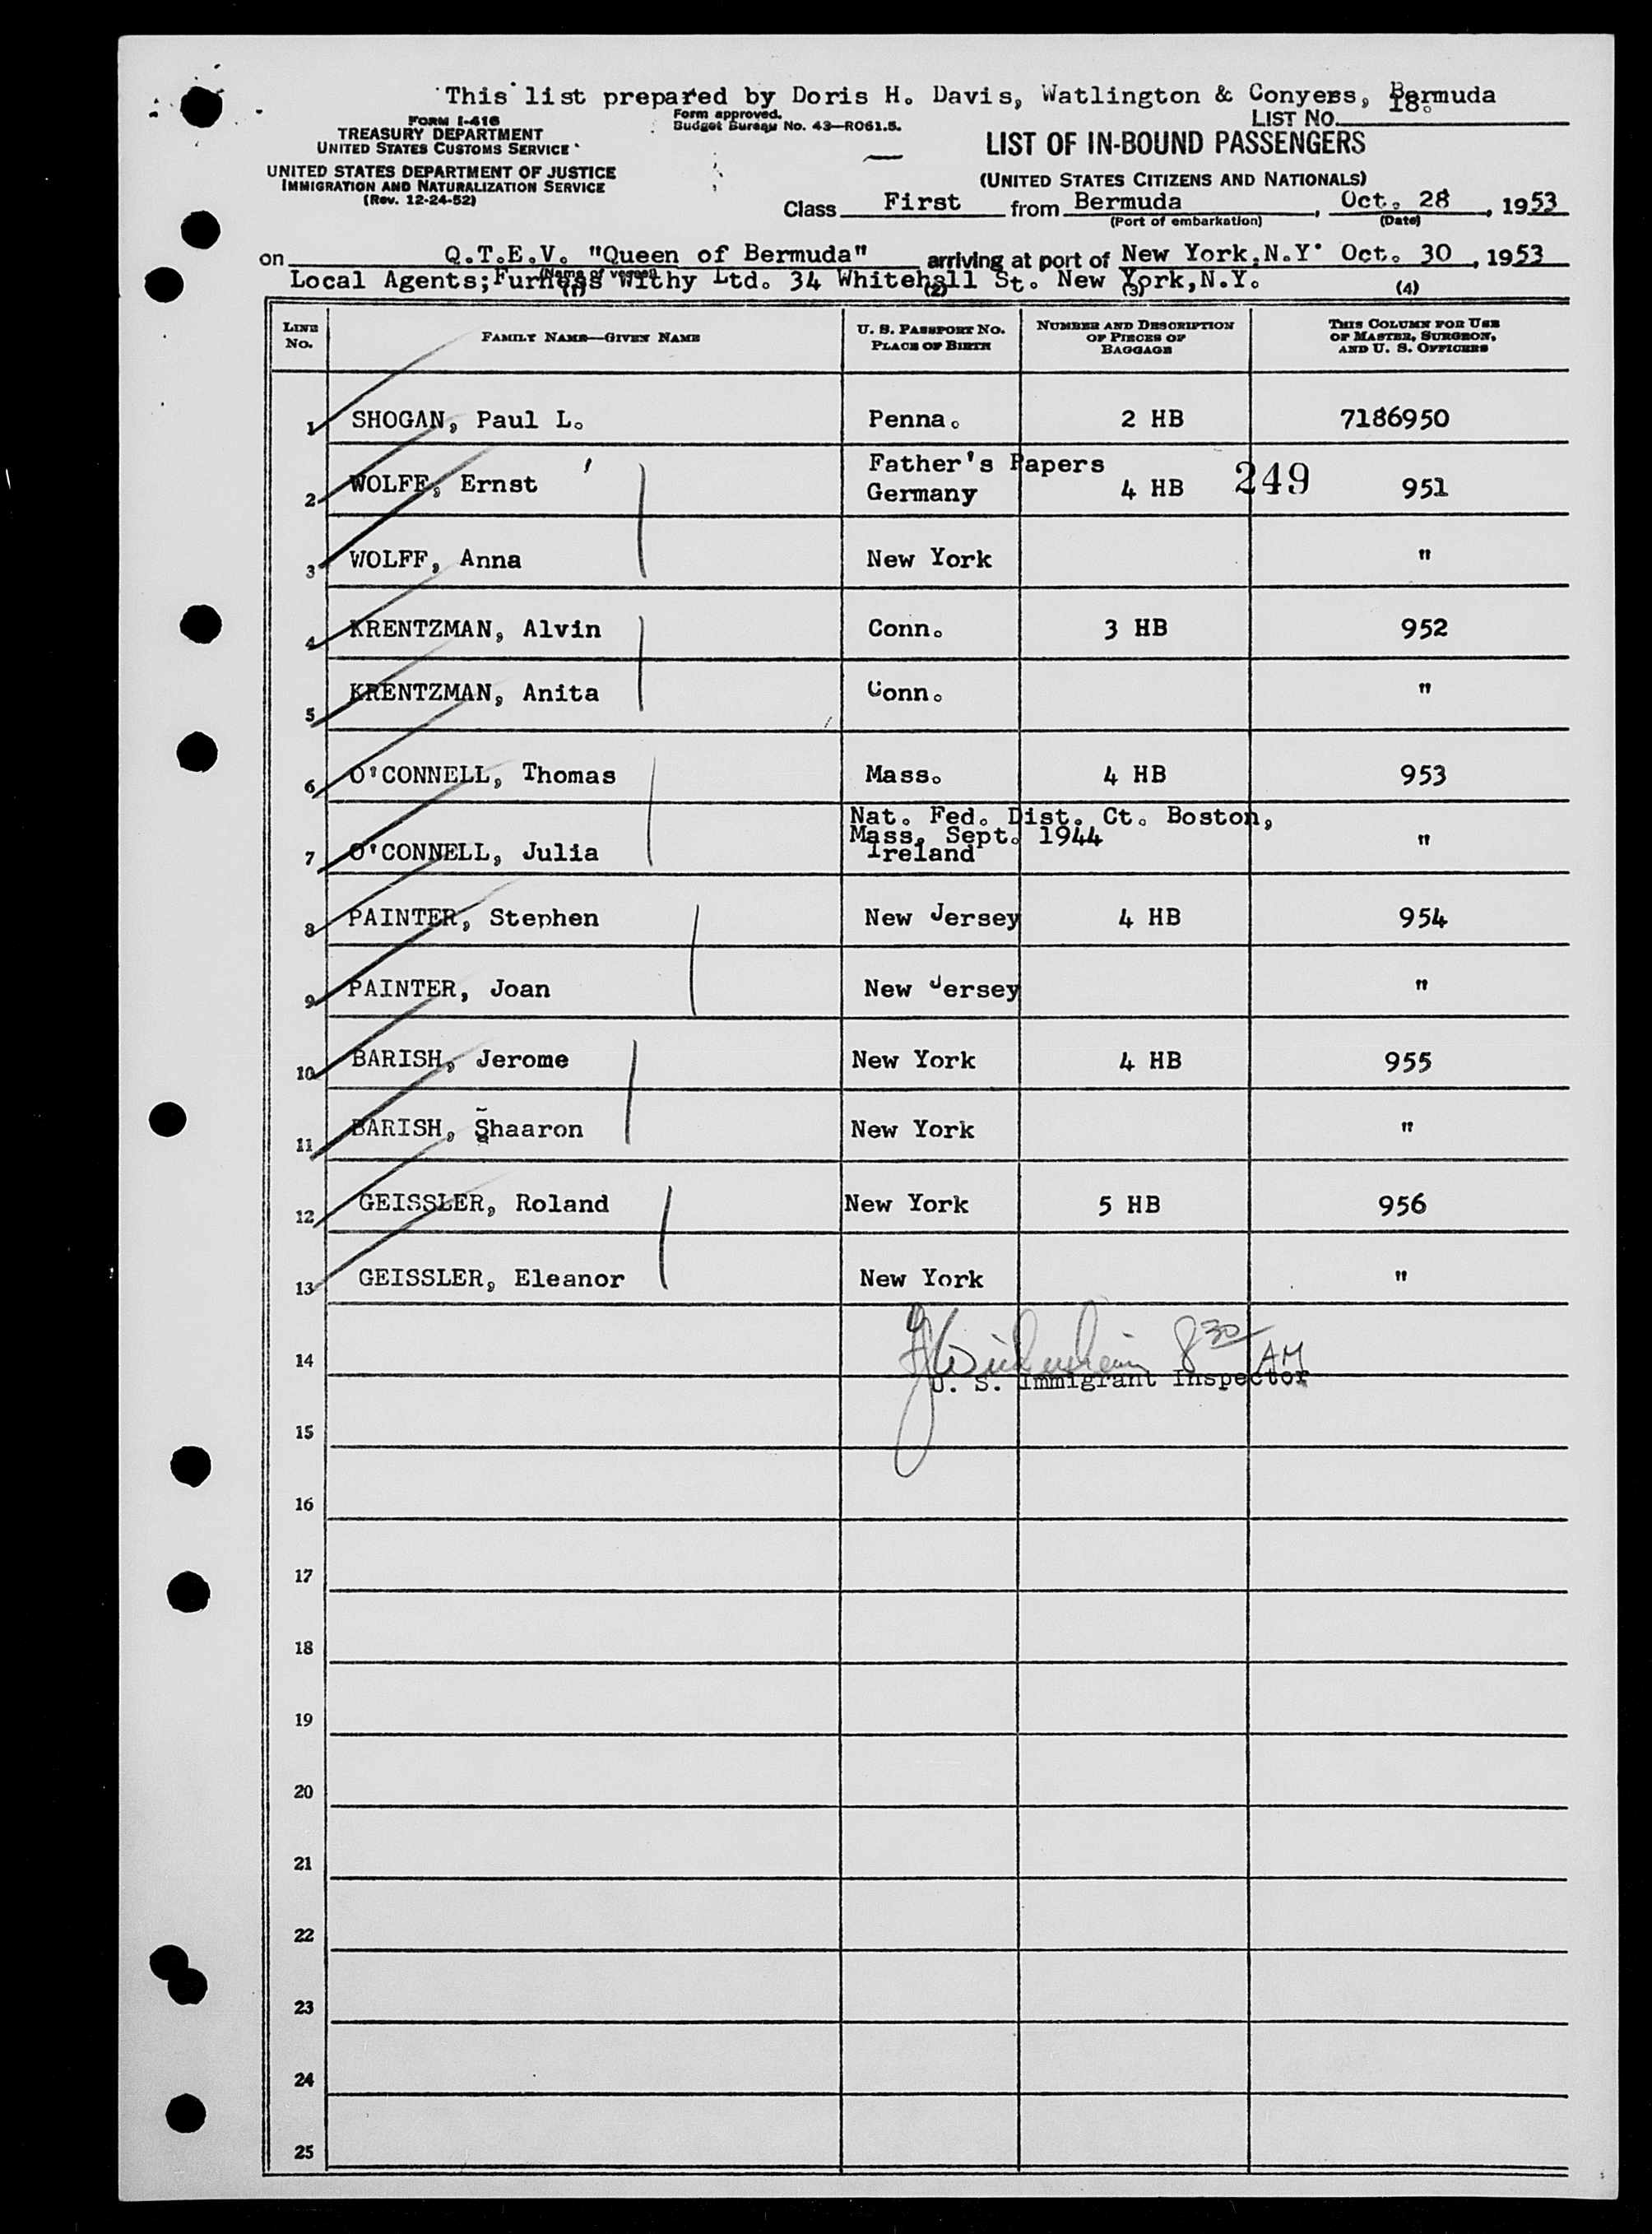 This list prepared by Doris H. Davis, Watlington & Conyers, Bermuda
FORM I-416
TREASURY DEPARTMENT
UNITED STATES CUSTOMS SERVICE
UNITED STATES DEPARTMENT OF JUSTICE
IMMIGRATION AND NATURALIZATION SERVICE
(Rev. 12-24-52)
Form approved.
Budget Bureau No. 43—R061.5.
LIST NO. 18.
LIST OF IN-BOUND PASSENGERS
(UNITED STATES CITIZENS AND NATIONALS)
Class First from Bermuda, Oct. 28, 1953
(Port of embarkation) (Date)
on Q.T.E.V. "Queen of Bermuda" arriving at port of New York, N.Y. Oct. 30, 1953
(Name of vessel)
Local Agents; Furness Withy Ltd. 34 Whitehall St. New York, N.Y.
(1) (2) (3) (4)
LINE No. FAMILY NAME—GIVEN NAME U. S. PASSPORT NO. PLACE OF BIRTH NUMBER AND DESCRIPTION OF PIECES OF BAGGAGE THIS COLUMN FOR USE OF MASTER, SURGEON, AND U. S. OFFICERS
1 SHOGAN, Paul L. Penna. 2 HB 7186950
Father's Papers
2 WOLFF, Ernst Germany 4 HB 249 951
3 WOLFF, Anna New York "
4 KRENTZMAN, Alvin Conn. 3 HB 952
5 KRENTZMAN, Anita Conn. "
6 O'CONNELL, Thomas Mass. 4 HB 953
Nat. Fed. Dist. Ct. Boston,
Mass. Sept. 1944
7 O'CONNELL, Julia Ireland "
8 PAINTER, Stephen New Jersey 4 HB 954
9 PAINTER, Joan New Jersey "
10 BARISH, Jerome New York 4 HB 955
11 BARISH, Shaaron New York "
12 GEISSLER, Roland New York 5 HB 956
13 GEISSLER, Eleanor New York "
8 30 AM
14
U. S. Immigrant Inspector
15
16
17
18
19
20
21
22
23
24
25